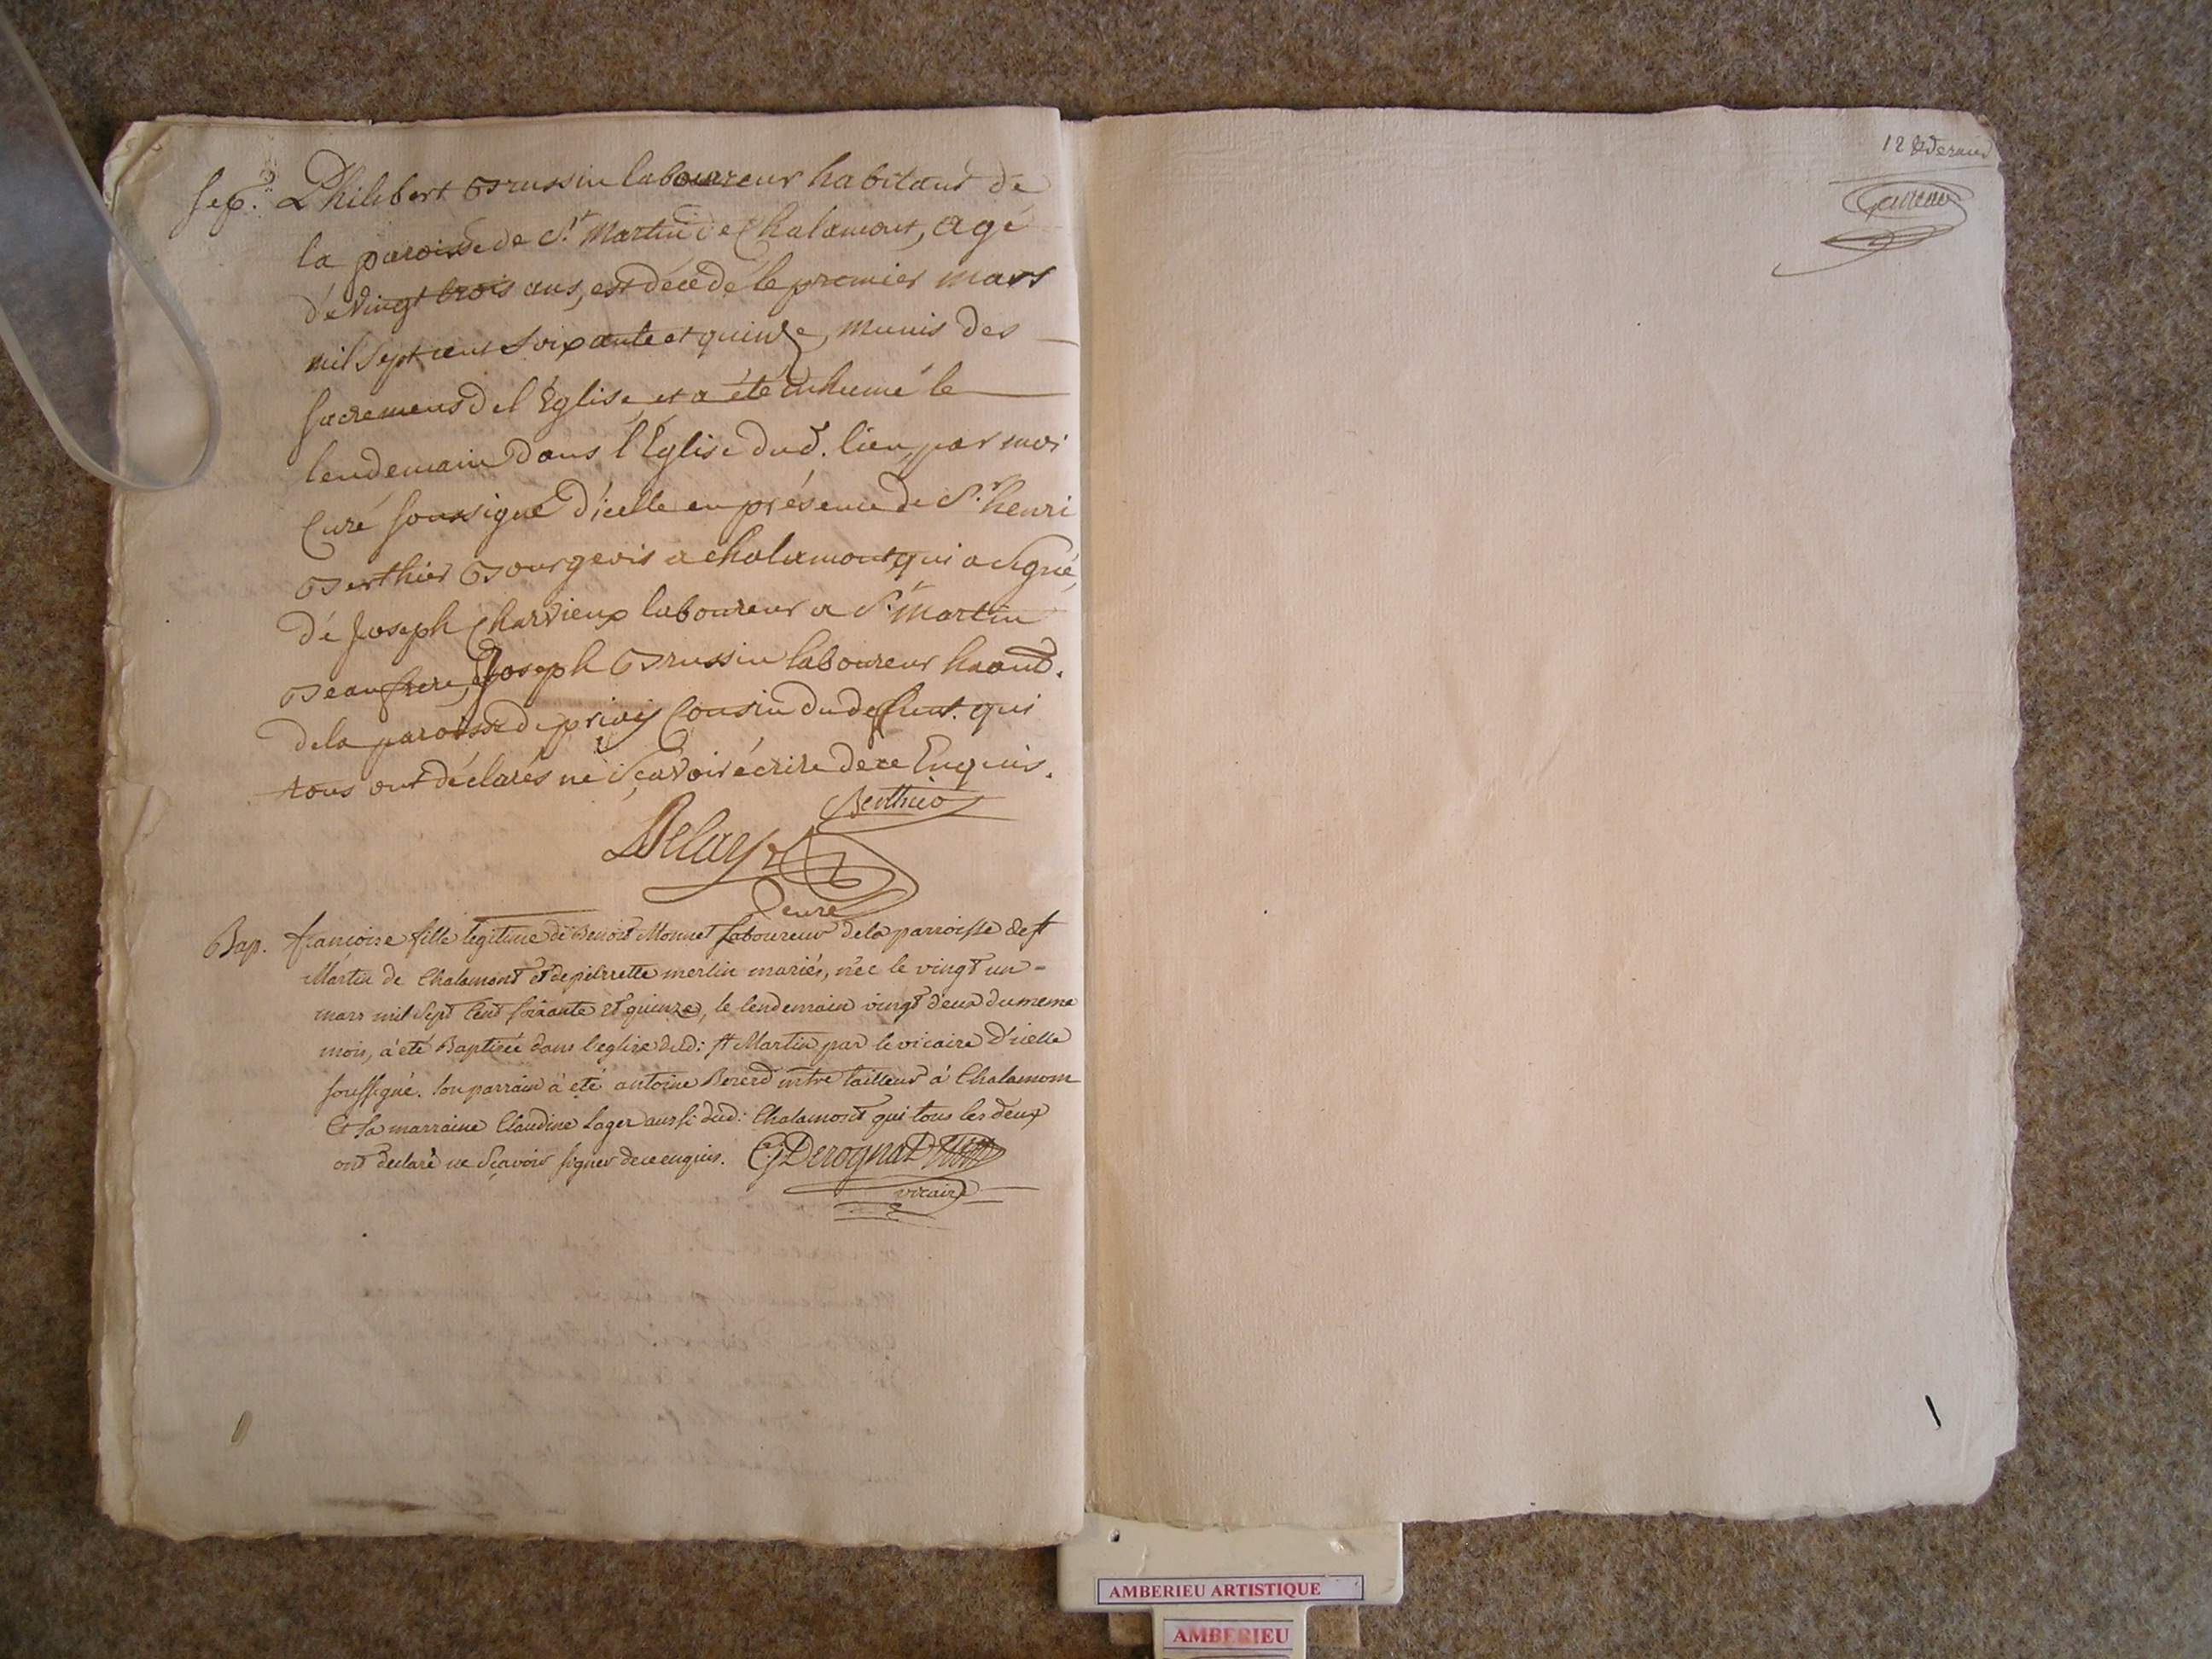 Sep.
Philibert Brussin laboureur habitant de
la paroisse de St. Martin de Chalamont, agé
dé vingt trois ans, est décedé le premier mars
mil sept cent soixante et quinze, munis des
sacremens de l'Église et a été inhumé le
lendemain dans l'Église dud. lieu, par moi
Curé soussigné d'icelle en présence de Sr. henri
Berthier Bourgeois a chalamont qui a signé,
dé Joseph Charvieux laboureur a St. Martin
Beaufrere, Joseph Brussin laboureur haant.
de la paroisse de priay Cousin du deffunt. qui
tous ont déclarés né sçavoir écrire de ce Enquis.
Berthier
Delay
curé
Bap.
françoise fille legitime de Benoit Monnet laboureur de la parroisse de st
Martin de Chalamont et de pierrette merlin mariés, née le vingt un
mars mil sept cent soixante et quinze, le lendemain vingt deux du meme
mois, à eté Baptisée dans l'eglise dud: st Martin par le vicaire d'icelle
soussigné. son parrain à eté antoine Bererd mtre tailleur à Chalamont
Et sa marraine Claudine Lager aussi dud: Chalamont qui tous les deux
ont declaré ne sçavoir signer de ce enquis. Derognat
vicaire
12
AMBERIEU ARTISTIQUE
AMBERIEU